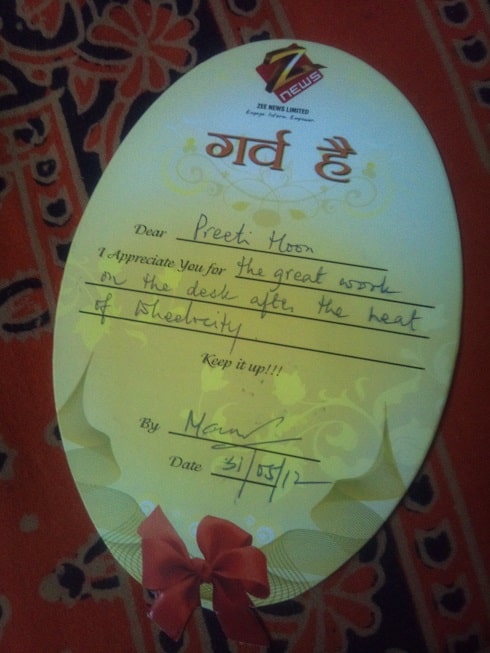 Z
NEWS
ZEE NEWS LIMITED
Engage. Inform. Empower.
गर्व है
Dear Preeti Hoon
I Appreciate You for the great work
on the desk after the heat
of
Keep it up!!!
By
Date 31/05/12